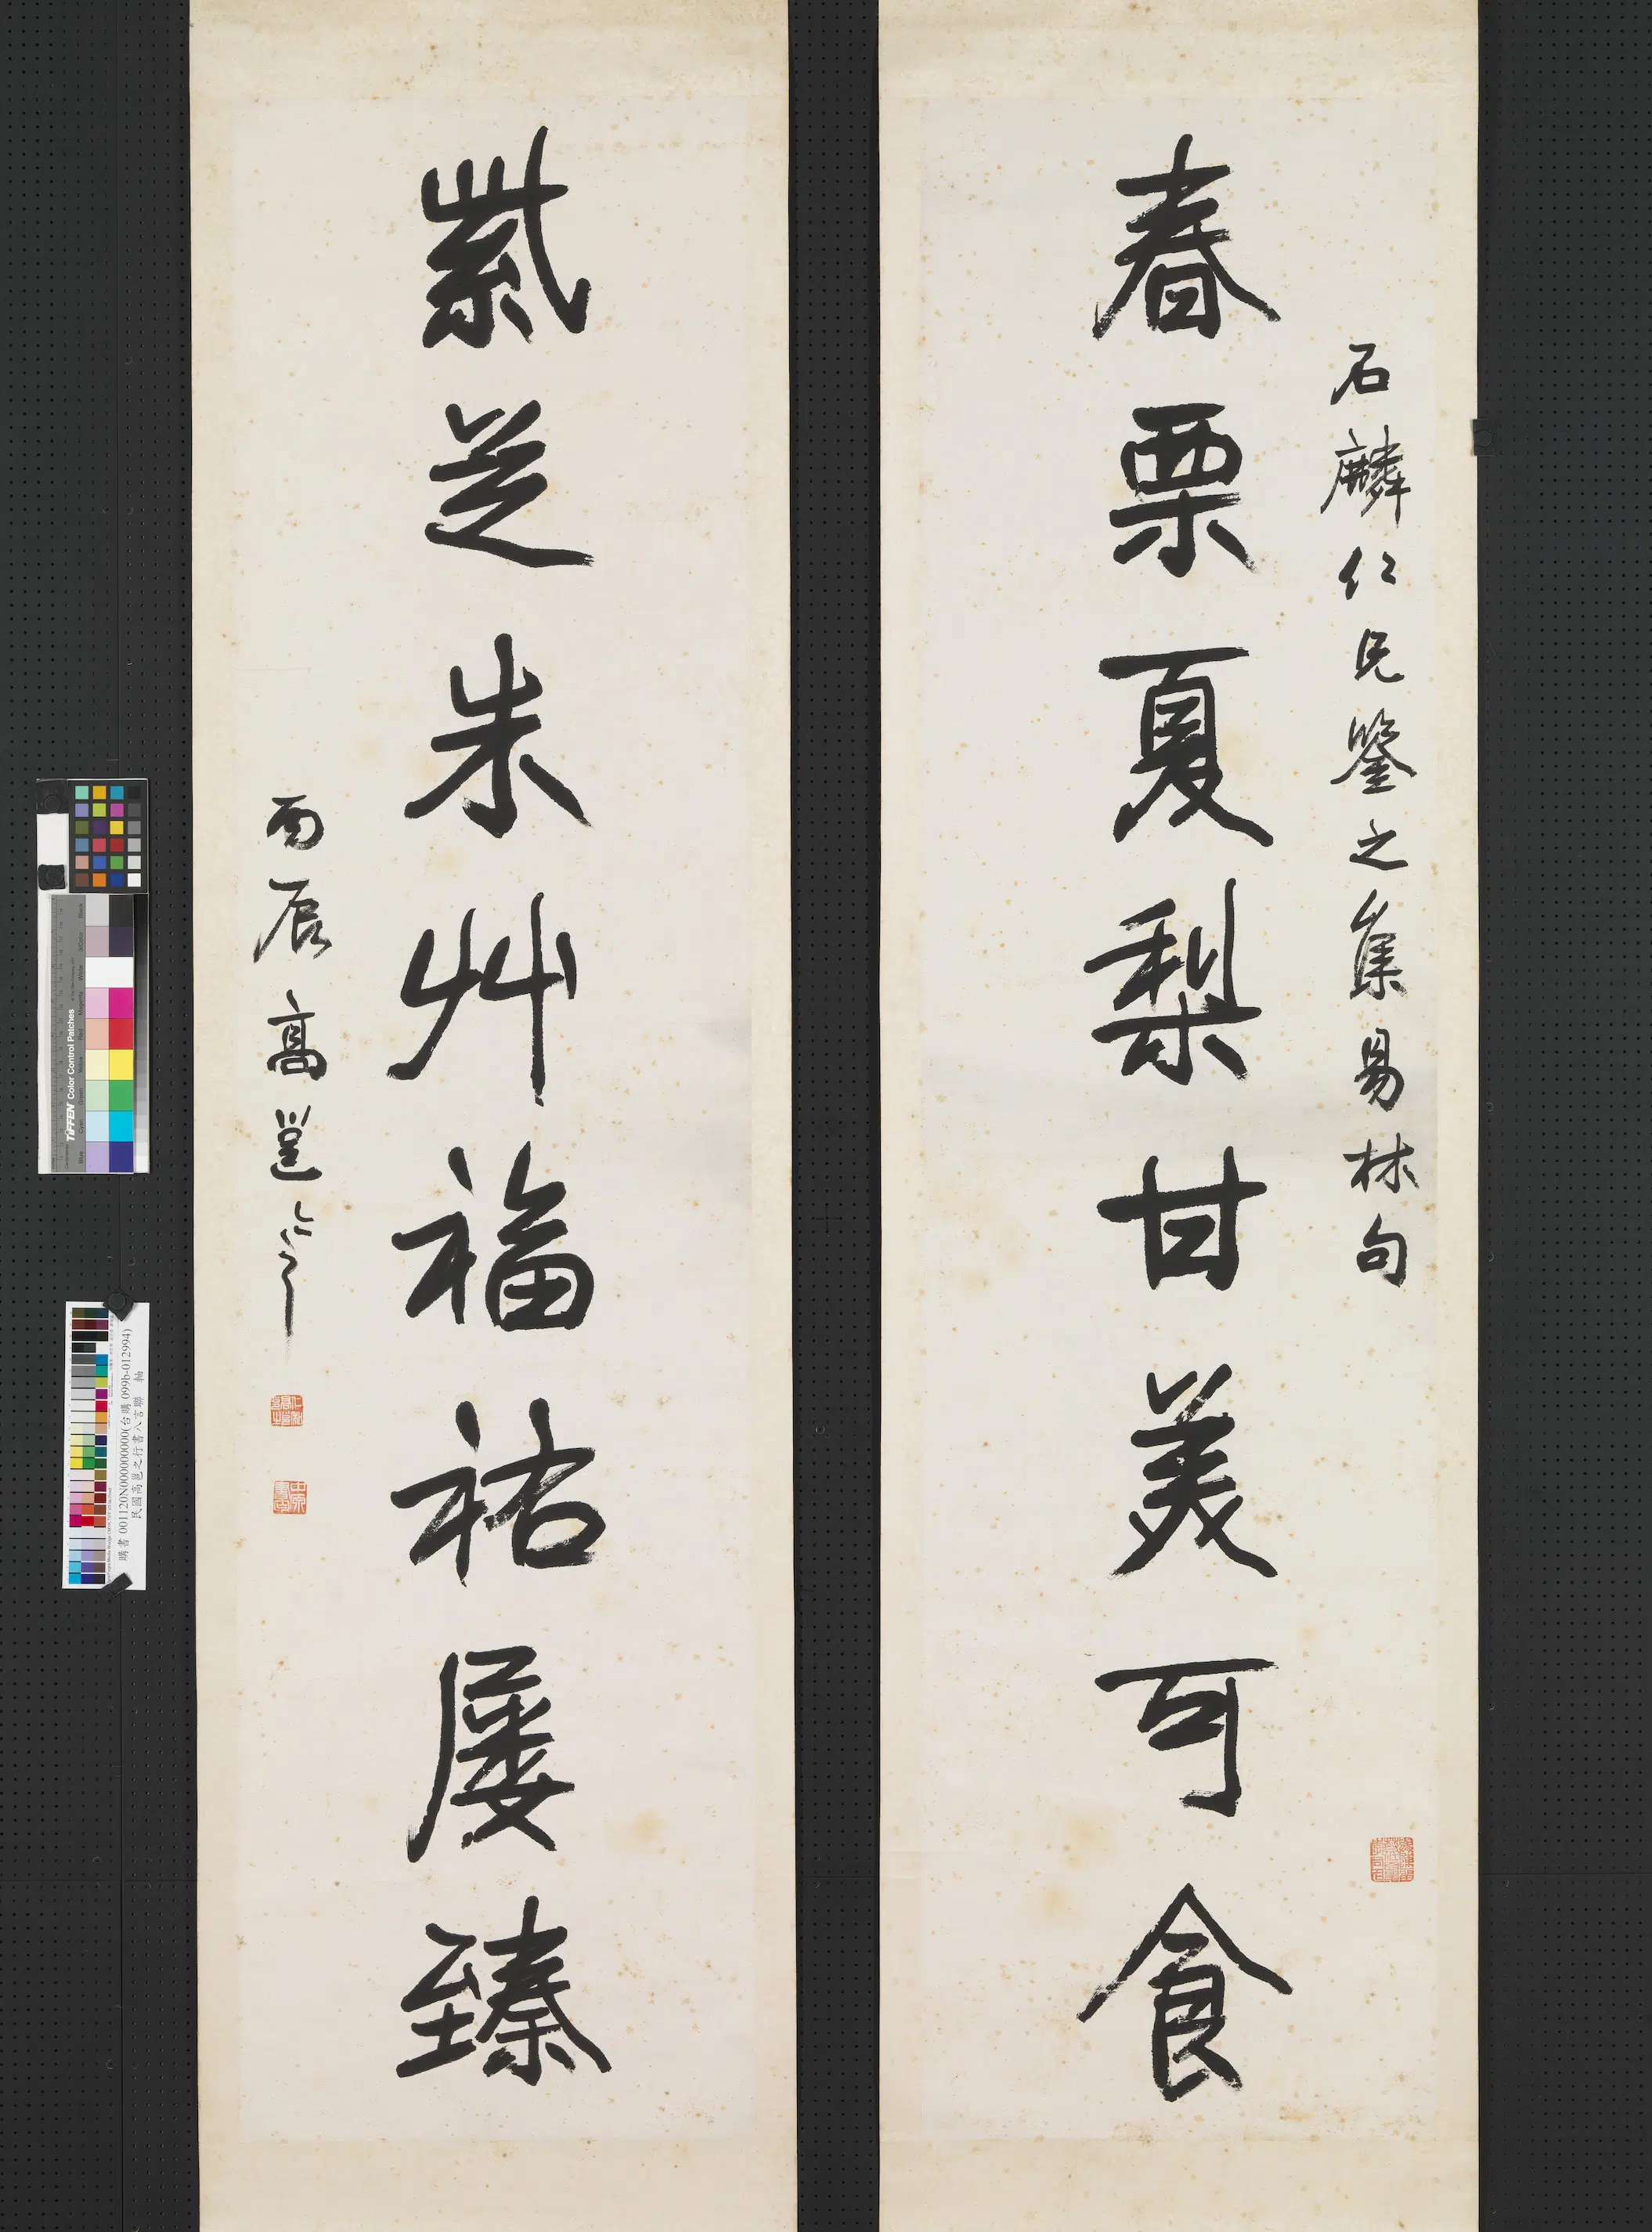 春栗夏梨甘美可食
石麟仁兄鑒之集易林句
紫芝朱艸福祐屢臻
丙辰高邕
TIFFEN Color Control Patches
購書 001120N000000000(台購 099b-012994)
民國高邕之行書八言聯 軸